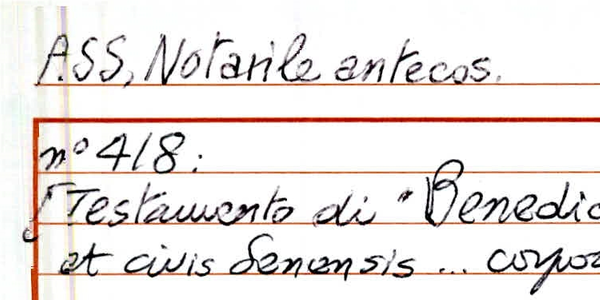 ASS, Notarile antecos.
n° 418:
Testamento di "Benedic
et civis Senensis ... corpo